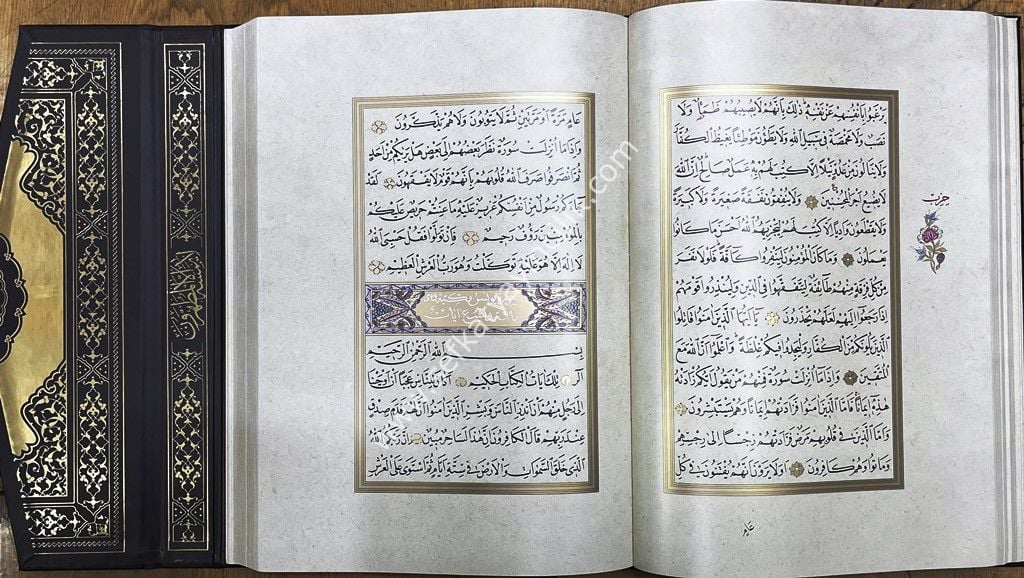 يَرْغَبُوا بِأَنْفُسِهِمْ عَنْ نَفْسِهِ ذٰلِكَ بِأَنَّهُمْ لَا يُصِيبُهُمْ ظَمَأٌ وَلَا
نَصَبٌ وَلَا مَخْمَصَةٌ فِي سَبِيلِ اللهِ وَلَا يَطَؤُنَ مَوْطِئًا يَغِيظُ الْكُفَّارَ
وَلَا يَنَالُونَ مِنْ عَدُوٍّ نَيْلًا إِلَّا كُتِبَ لَهُمْ بِهِ عَمَلٌ صَالِحٌ إِنَّ اللهَ
لَا يُضِيعُ أَجْرَ الْمُحْسِنِينَ وَلَا يُنْفِقُونَ نَفَقَةً صَغِيرَةً وَلَا كَبِيرَةً
وَلَا يَقْطَعُونَ وَادِيًا إِلَّا كُتِبَ لَهُمْ لِيَجْزِيَهُمُ اللهُ أَحْسَنَ مَا كَانُوا
يَعْمَلُونَ وَمَا كَانَ الْمُؤْمِنُونَ لِيَنْفِرُوا كَافَّةً فَلَوْلَا نَفَرَ
مِنْ كُلِّ فِرْقَةٍ مِنْهُمْ طَائِفَةٌ لِيَتَفَقَّهُوا فِي الدِّينِ وَلِيُنْذِرُوا قَوْمَهُمْ
إِذَا رَجَعُوا إِلَيْهِمْ لَعَلَّهُمْ يَحْذَرُونَ يَا أَيُّهَا الَّذِينَ آمَنُوا قَاتِلُوا
الَّذِينَ يَلُونَكُمْ مِنَ الْكُفَّارِ وَلْيَجِدُوا فِيكُمْ غِلْظَةً وَاعْلَمُوا أَنَّ اللهَ مَعَ
الْمُتَّقِينَ وَإِذَا مَا أُنْزِلَتْ سُورَةٌ فَمِنْهُمْ مَنْ يَقُولُ أَيُّكُمْ زَادَتْهُ
هٰذِهِ إِيمَانًا فَأَمَّا الَّذِينَ آمَنُوا فَزَادَتْهُمْ إِيمَانًا وَهُمْ يَسْتَبْشِرُونَ
وَأَمَّا الَّذِينَ فِي قُلُوبِهِمْ مَرَضٌ فَزَادَتْهُمْ رِجْسًا إِلَى رِجْسِهِمْ
وَمَاتُوا وَهُمْ كَافِرُونَ أَوَلَا يَرَوْنَ أَنَّهُمْ يُفْتَنُونَ فِي كُلِّ
عَامٍ
حزب
عَامٍ مَرَّةً أَوْ مَرَّتَيْنِ ثُمَّ لَا يَتُوبُونَ وَلَا هُمْ يَذَّكَّرُونَ
وَإِذَا مَا أُنْزِلَتْ سُورَةٌ نَظَرَ بَعْضُهُمْ إِلَى بَعْضٍ هَلْ يَرَاكُمْ مِنْ أَحَدٍ
ثُمَّ انْصَرَفُوا صَرَفَ اللهُ قُلُوبَهُمْ بِأَنَّهُمْ قَوْمٌ لَا يَفْقَهُونَ لَقَدْ
جَاءَكُمْ رَسُولٌ مِنْ أَنْفُسِكُمْ عَزِيزٌ عَلَيْهِ مَا عَنِتُّمْ حَرِيصٌ عَلَيْكُمْ
بِالْمُؤْمِنِينَ رَؤُفٌ رَحِيمٌ فَإِنْ تَوَلَّوْا فَقُلْ حَسْبِيَ اللهُ
لَا إِلٰهَ إِلَّا هُوَ عَلَيْهِ تَوَكَّلْتُ وَهُوَ رَبُّ الْعَرْشِ الْعَظِيمِ
سورة يونس مكية وهي
مائة وتسع آيات
بِسْمِ اللهِ الرَّحْمٰنِ الرَّحِيمِ
الٓرٰ تِلْكَ آيَاتُ الْكِتَابِ الْحَكِيمِ أَكَانَ لِلنَّاسِ عَجَبًا أَنْ أَوْحَيْنَا
إِلَى رَجُلٍ مِنْهُمْ أَنْ أَنْذِرِ النَّاسَ وَبَشِّرِ الَّذِينَ آمَنُوا أَنَّ لَهُمْ قَدَمَ صِدْقٍ
عِنْدَ رَبِّهِمْ قَالَ الْكَافِرُونَ إِنَّ هٰذَا لَسَاحِرٌ مُبِينٌ إِنَّ رَبَّكُمُ اللهُ
الَّذِي خَلَقَ السَّمٰوَاتِ وَالْأَرْضَ فِي سِتَّةِ أَيَّامٍ ثُمَّ اسْتَوَى عَلَى الْعَرْشِ
لا يمسه إلا المطهرون